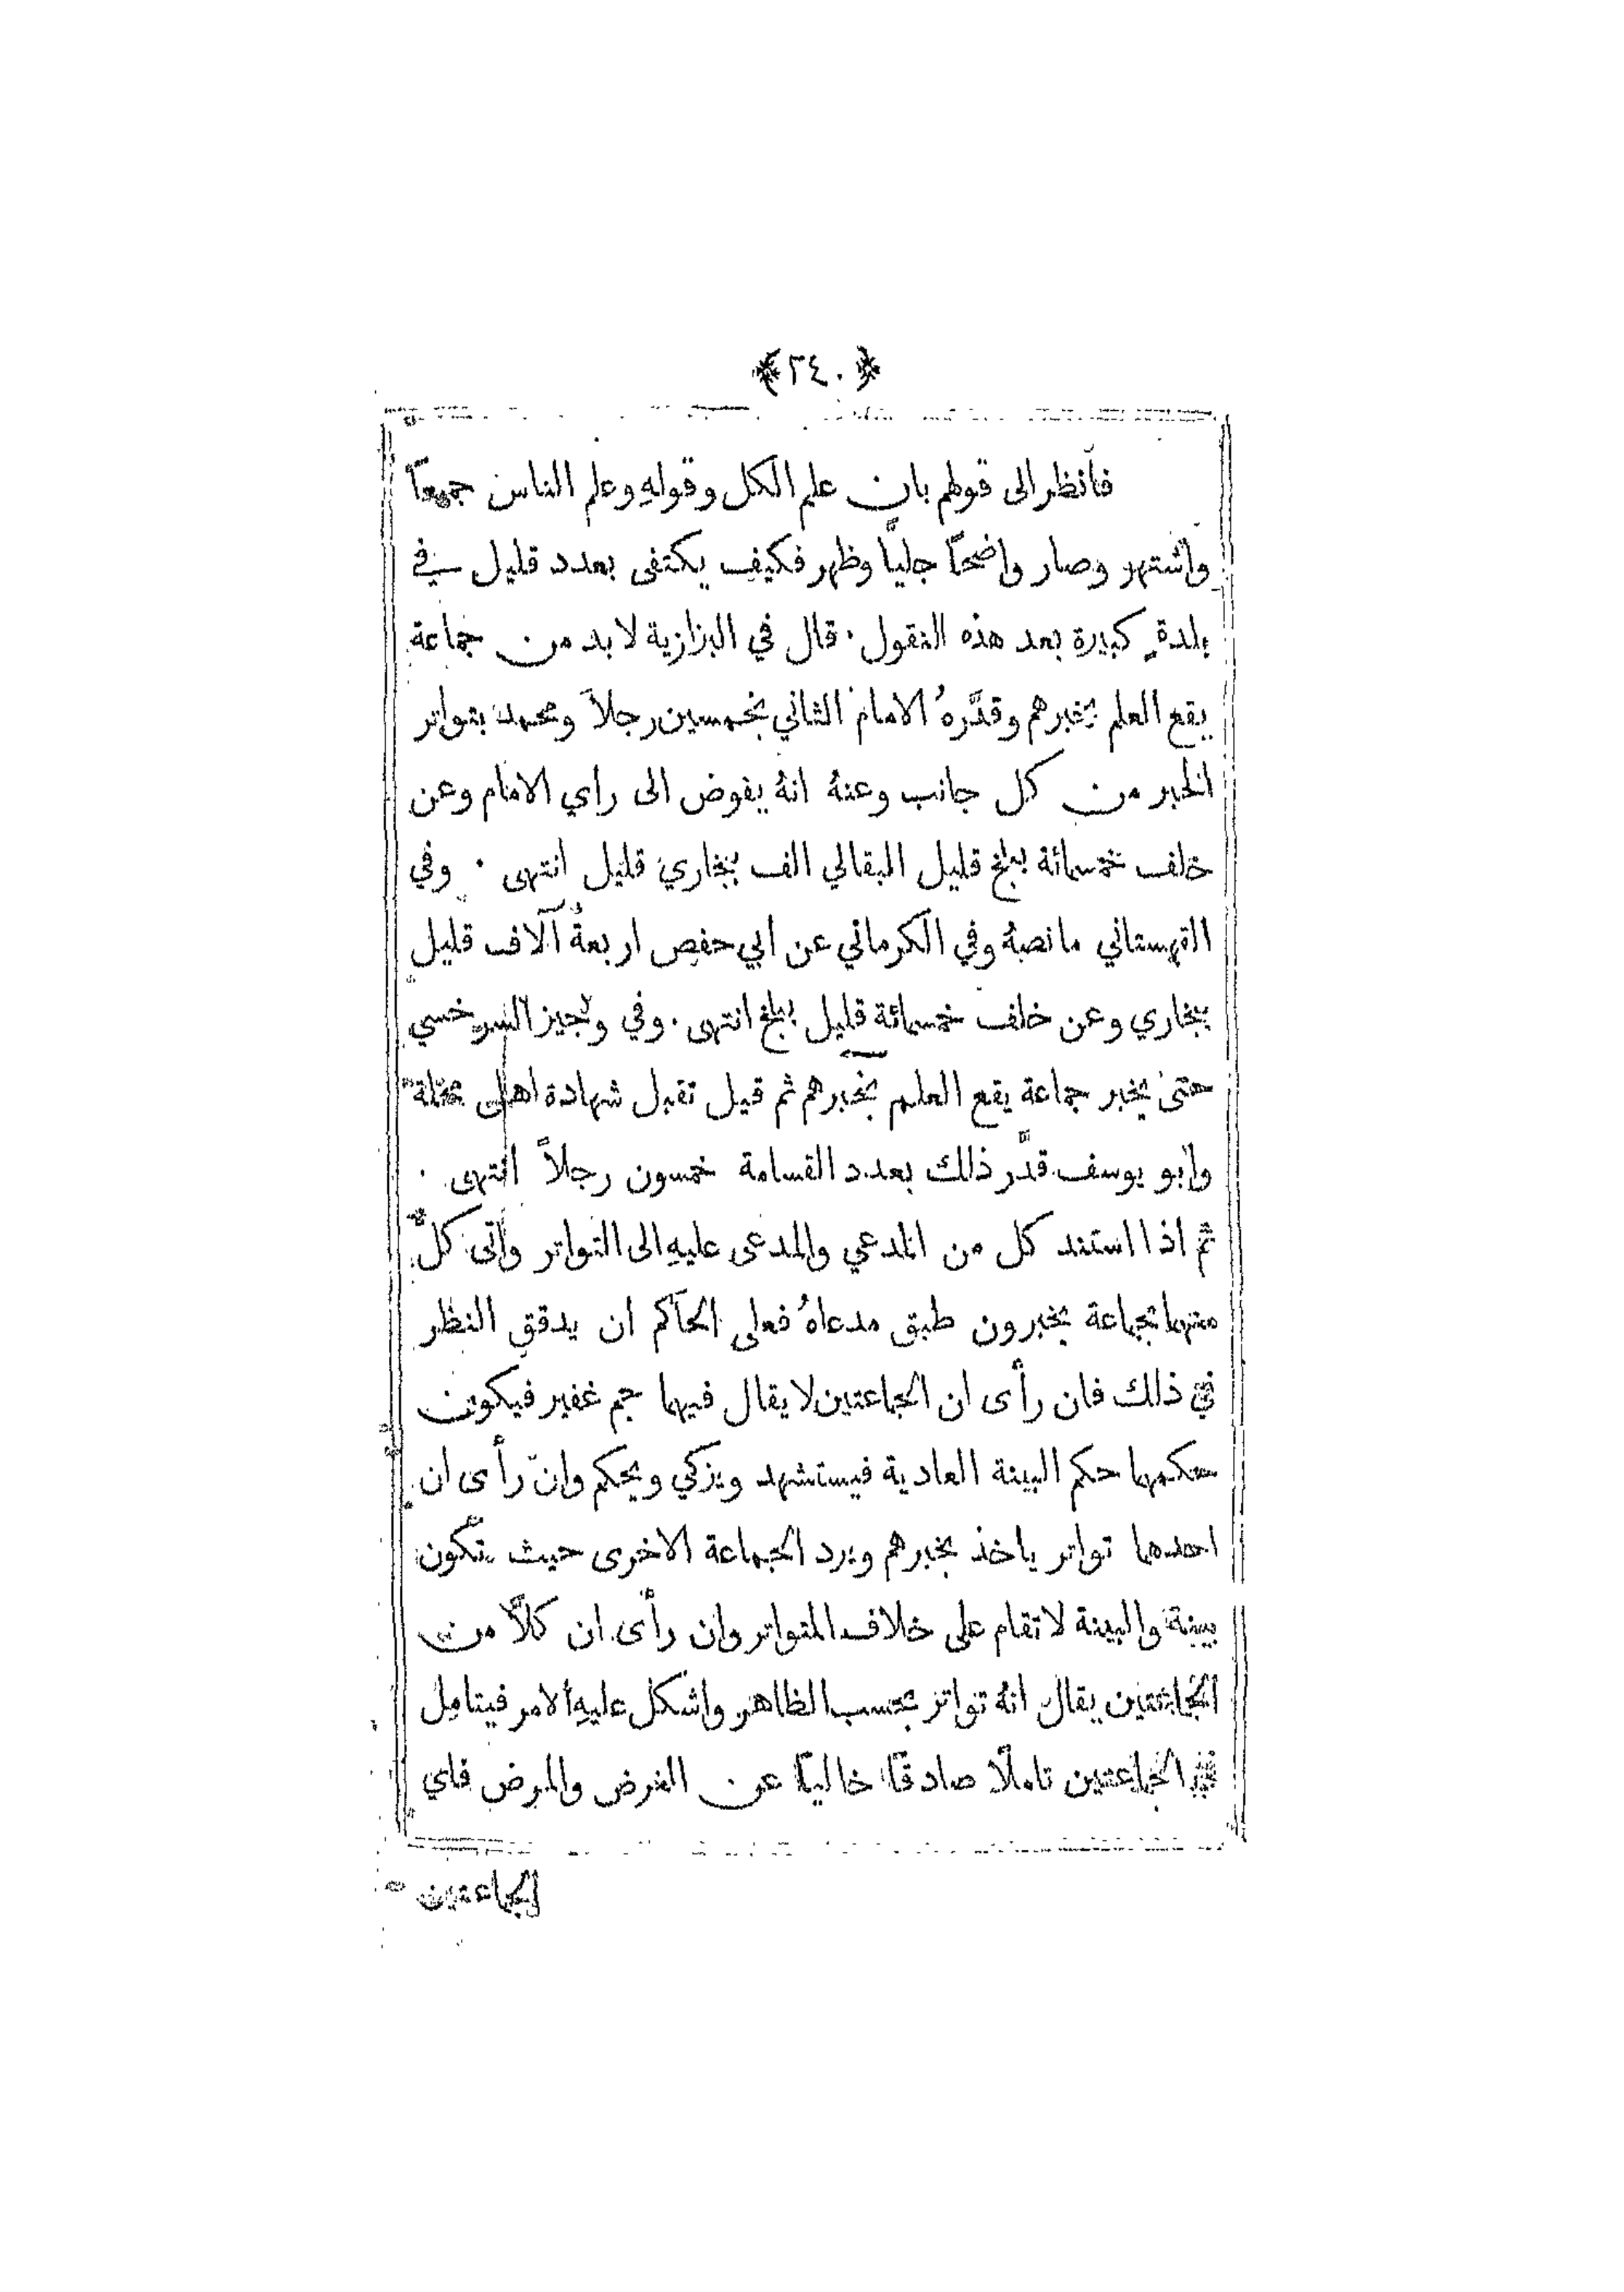 ﴿٢٤٠﴾
فأنظر الى قولهم بان علم الكل وقولهِ وعلم الناس جميعاً
واشتهر وصار واضحاً جلياً وظهر فكيف يكتفى بعدد قليل في
بلدةٍ كبيرة بعد هذه النقول ٠ قال في البزازية لا بد من جماعة
يقع العلم بخبرهم وقدَّرهُ الامام الثاني بخمسين رجلاً ومحمد بتواتر
الخبر من كل جانب وعنهُ انهُ يفوض الى راي الامام وعن
خلف خمسمائة ببلخ قليل البقالي الف ببخارى قليل انتهى ٠ وفي
القهستاني ما نصهُ وفي الكرماني عن ابي حفص اربعةُ آلاف قليل
ببخاري وعن خلف خمسمائة قليل ببلخ انتهى ٠ وفي وجيز السرخسي
حتى يخبر جماعة يقع العلم بخبرهم ثم قيل تقبل شهادة اهالى محلة
وابو يوسف قدَّر ذلك بعدد القسامة خمسون رجلاً انتهى ٠
ثم اذا استند كل من المدعي والمدعى عليهِ الى التواتر واتى كلٌّ
منهما بجماعة يخبرون طبق مدعاهُ فعلى الحاكم ان يدقق النظر
في ذلك فان رأى ان الجماعتين لا يقال فيهما جم غفير فيكون
حكمهما حكم البينة العادية فيستشهد ويزكي ويحكم وان رأى ان
احدهما تواتر ياخذ بخبرهم ويرد الجماعة الاخرى حيث تكون
بينة والبينة لا تقام على خلاف المتواتر وان رأى ان كلاًّ من
الجماعتين يقال انهُ تواتر بحسب الظاهر واشكل عليهِ الامر فيتامل
في الجماعتين تاملاً صادقاً خالياً عن الغرض والمرض فاي
الجماعتين